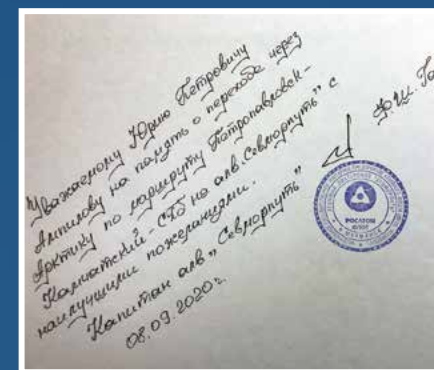 Уважаемому Юрию Петровичу
Антипову на память о переходе через
Арктику по маршруту Петропавловск-
Камчатский - СПб на алв. "Севморпуть" с
наилучшими пожеланиями.
Капитан алв "Севморпуть"
08.09.2020г.
РОСАТОМ